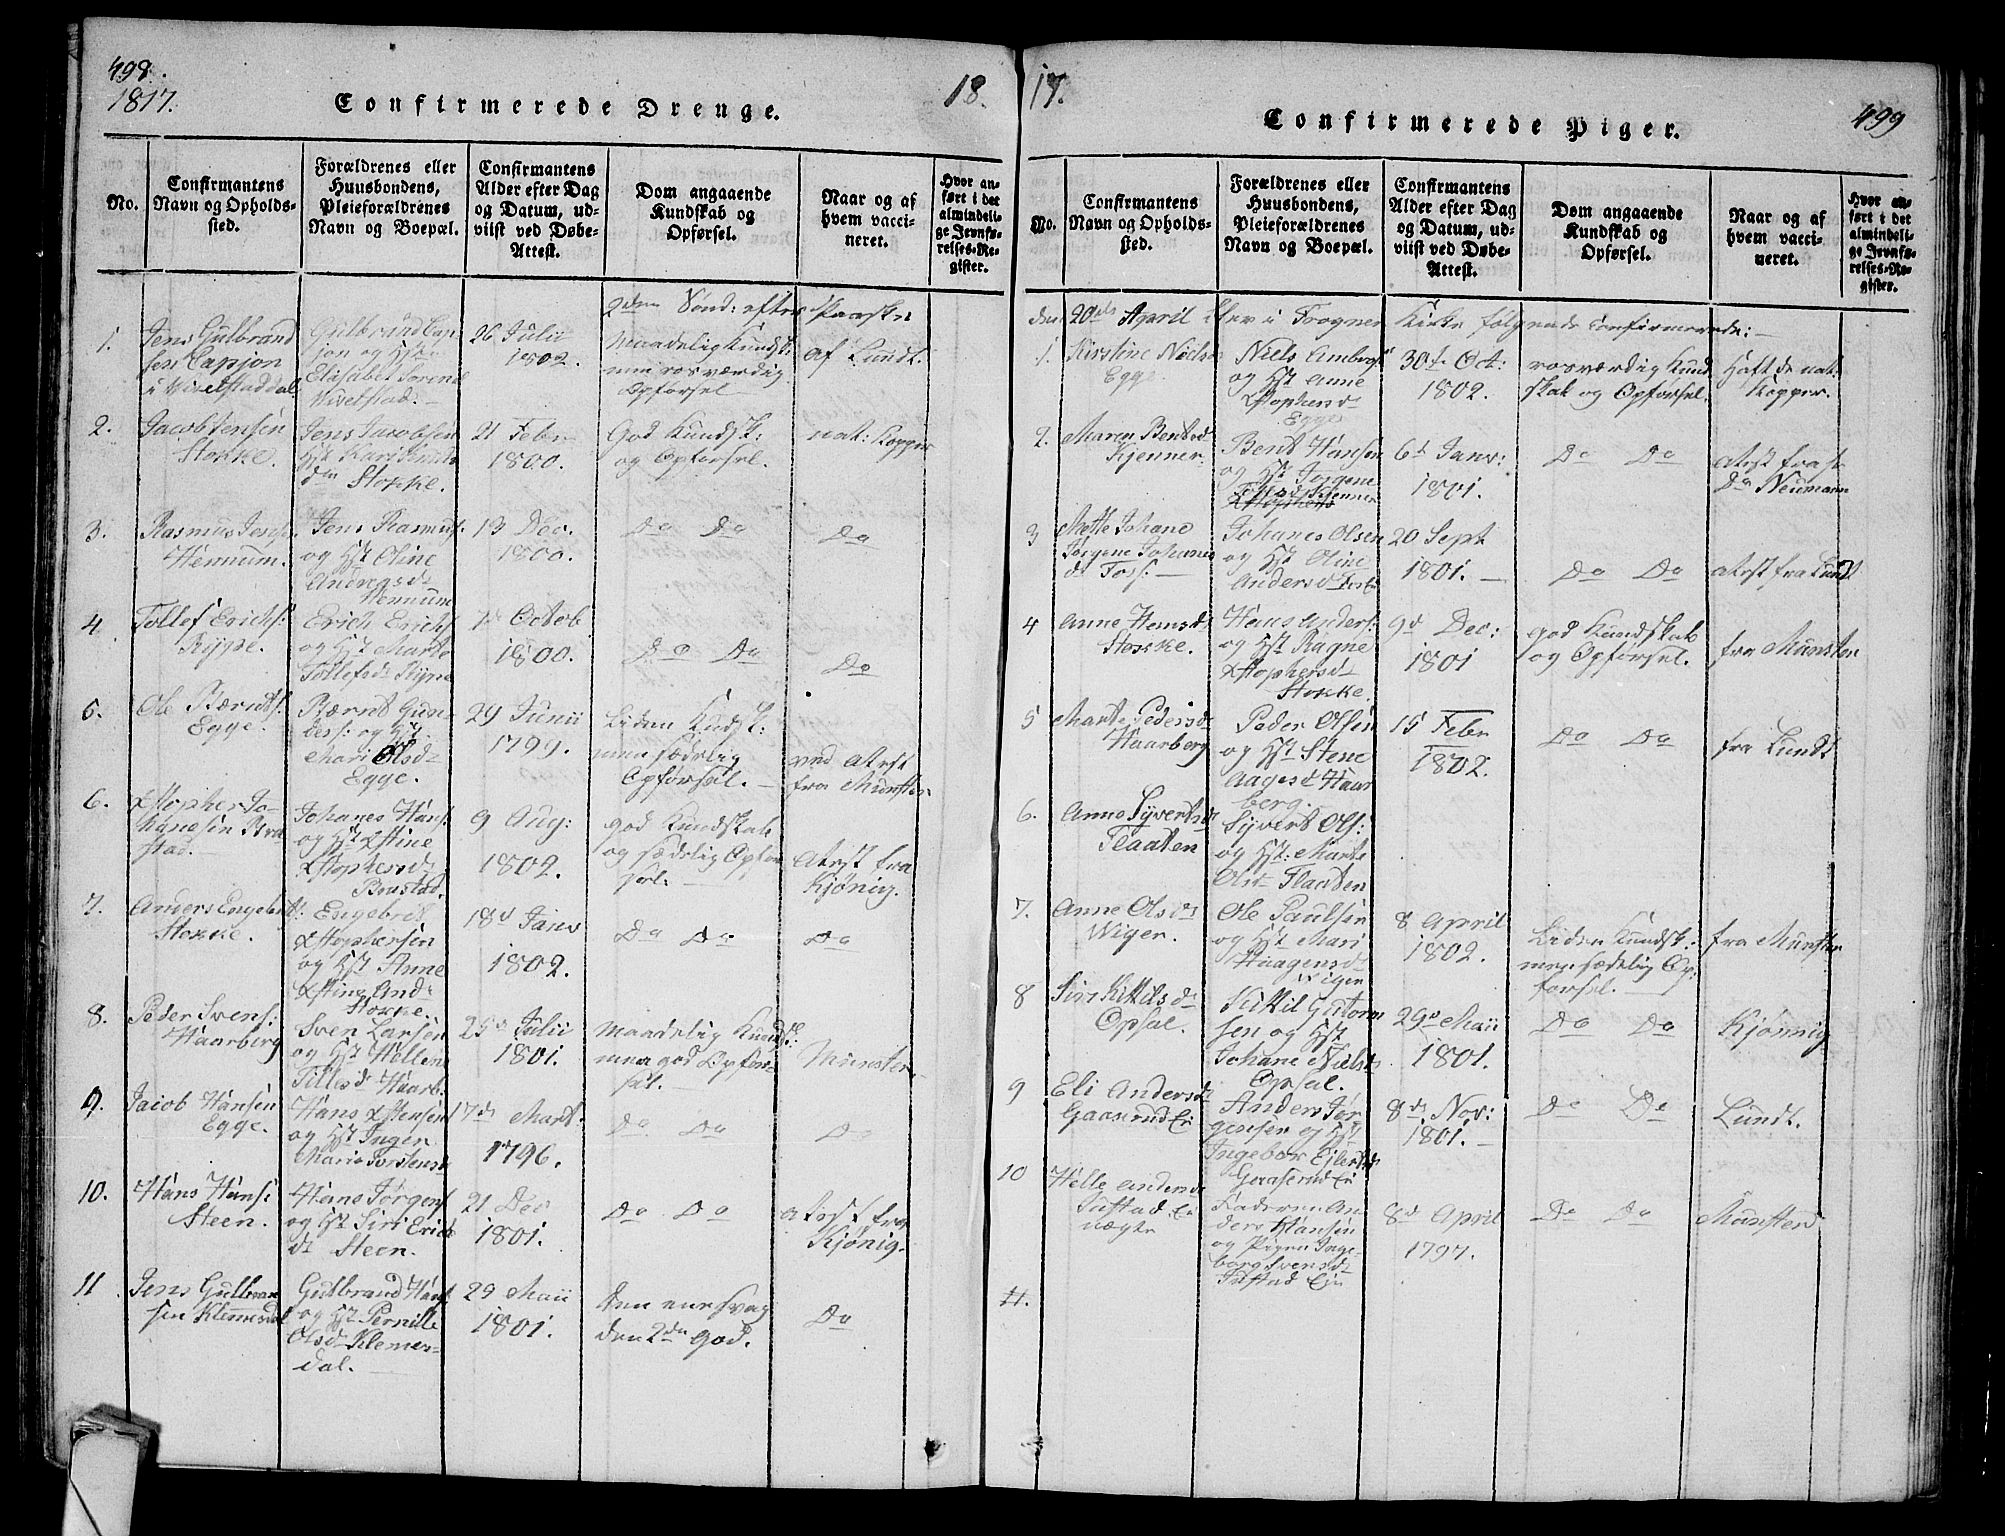 498.
1817.
Confirmerede Drenge.
18
No.
Confirmantens
Navn og Opholds-
sted.
Forældrenes eller
Huusbondens,
Pleieforældrenes
Navn og Boepæl.
Confirmantens
Alder efter Dag
og Datum, ud-
viist ved Døbe-
Attest.
Dom angaaende
Kundskab og
Opførsel.
Naar og af
hvem vacci-
neret.
Hvor an-
ført i det
almindeli-
ge Jevnfø-
relses-Re-
gister.
2den Sønd: efter Paaske
1.
Jens Gulbrand
sen Capjon
i Wivelstaddal
Gulbrand Cap
jon og Hst
Elisabet Sorens
Wivelstad.
26 Julii
1802.
Maadelig Kundsk:
men rosværdig
Opførsel
af Lundt.
2.
Jacob Jensen
Stokke.
Jens Jacobsen
Hst Kari
Stokke.
21 Febr
1800.
God Kundsk:
og Opførsel.
nat: Kopper
3.
Rasmus Jens:
Hennum.
Jens Rasmus:
og Hst Oline
Andreasd
Hennum
13 Dec.
1800.
Do Do
Do
4
Tollef Erichs:
Rype.
Erich Erichs
og Hst Marte
Tollefsd Rype
Octob
1800.
Do Do
Do
5.
Ole Berndts:
Egge.
Berndt Gun-
ders: og Hst
Mari Olsd
Egge.
29 Junii
1799.
Liden Kundsk:
men sædelig
Opførsel.
ved Atest
fra Münster
6.
Xstopher Jo-
hanesen Bra
stad.
Johanes Hans:
og Hst Xstine
Xstophersd
Brastad.
9 Aug:
1802.
God Kundskab
og sædelig Opfør
sel.
Atest fra
Kjønig.
7.
Anders Engebrets:
Stokke.
Engebret
Xstophersen
og Hst Anne
Xstine And
Stokke.
18d Janv
1802.
Do Do
Do
8.
Peder Svens:
Haarberg
Sven Larsen
og Hst Hellene
Tillesd Haarb:
25d Julii
1801.
Maadelig Kundsk:
men god Opfør-
sel.
Münster
9.
Jacob Hansen
Egge.
Hans Xstensen
og Hst Inger
Marie Torstensd
17de Mart
1796.
Do Do
Do
10.
Hans Hans:
Steen.
Hans Jørgens
og Hst Siri Erichs
dt Steen.
21 Dec
1801.
Do Do
Atest fra
Kjønig.
11
Jens Gulbran
sen Klemesdal
Gulbrand Hans
og Hst Pernille
Olsd Klemes-
dal.
29 Maii
1801.
Den ene svag
den 2den God.
Do
17.
Confirmerede Piger.
499
No.
Confirmantens
Navn og Opholds-
sted.
Forældrenes eller
Huusbondens,
Pleieforældrenes
Navn og Boepæl.
Confirmantens
Alder efter Dag
og Datum, ud-
viist ved Døbe-
Attest.
Dom angaaende
Kundskab og
Opførsel.
Naar og af
hvem vacci-
neret.
Hvor an-
ført i det
almindeli-
ge Jevnfø-
relses-Re-
gister.
den 20de April blev i Frogner Kirke følgende Confirmerede:
1.
Kirstine Niels
Egge
Niels Ambrs
og Hst Anne
Xstophersd
Egge
30t Oct:
1802.
rosværdig Kund
skab og Opførsel.
Haft de nat:
Kopper.
2.
Maren Bentsd
Kjenner.
Bent Hansen
og Hst Jørgene
Kjenner
6d Janv:
1801.
Do Do
Atest fra
Neumann
3
Mette Johane
Jørgene Johanes
d Foss:
Johanes Olsen
og Hst Oline
Andersd Foss
20 Sept
1801.
Do Do
Atest fra Lundt
4
Anne Hansd
Stokke.
Hans Anders:
og Hst Ragne
Xstophersd
Stokke.
9d Dec:
1801
God Kundskab
og Opførsel.
fra Münster
5
Marte Pedersd
Haarberg
Peder Olsen
og Hst Stene
Aagesd Haar
berg.
15 Febr
1802.
Do Do
fra Lundt
6.
Anne Syvertsd
Flaaten
Syvert Ols:
og Hst: Marte
Olsd Flaaten
7.
Anne Olsd
Wiger.
Ole Paulsen
og Hst Mari
Haagensd
Wiger
8 April
1802.
Liden Kundsk:
men sædelig Op
førsel.
fra Münster
8
Siri Kittilsd
Opsal.
Kittil Gutorm
sen og Hst
Johane Nielsd
Opsal.
29d Maii
1801.
Do Do
Kjønnig
9
Eli Andersd
Gaaserud Ei
Anders Jør
gensen og Hst
Ingebor Ejlertsd
Gaaserud Ei
8de Nov:
1801.
Do Do
Lundt.
10
Helle Andersd
Justad Ei
uægte
Faderen An
ders Hansen
og Pigen Inge-
borg Svensd
Justad Eje
8d April
1797.
Do Do
Münster
11.